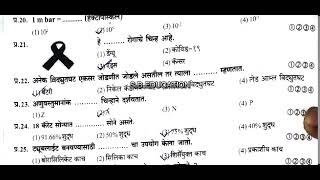 प्र.20. 1 m bar = ............ (हेक्टापास्कल)
(1) 10² (3) 10⁻² ①②③④
प्र.21. हे ............ रोगाचे चिन्ह आहे.
(1) डेंग्यू (2) कोविड-१९
(3) एड्स (4) कॅन्सर ①②③④
प्र.22. अनेक विद्युतघट एकसर जोडणीत जोडले असतील तर त्याला ............ म्हणतात.
(1) बॅटरी (4) लेड आम्ल विद्युतघट
प्र.23. अणुवस्तुमानांक ............ चिन्हाने दर्शवतात.
(2) Z (3) N (4) P
प्र.24. 18 कॅरेट सोन्यात ............ सोने असते.
(1) 91.66% शुद्ध (2) 50% शुद्ध (3) 75% शुद्ध (4) 40% शुद्ध ①②③④
प्र.25. ट्यूबलाईट बनवण्यासाठी ............ चा उपयोग केला जातो.
(1) बोरोसिलिकेट काच (2) सिलिका काच (3) शिसेयुक्त काच (4) प्रकाशीय काच ①②③④